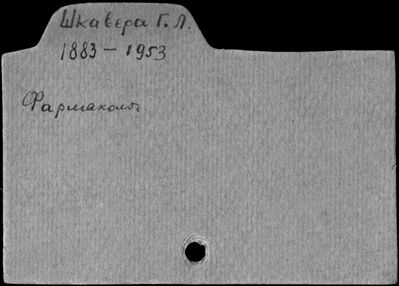 Шкавера Г. Л.
1883 – 1953
Фармаколог.